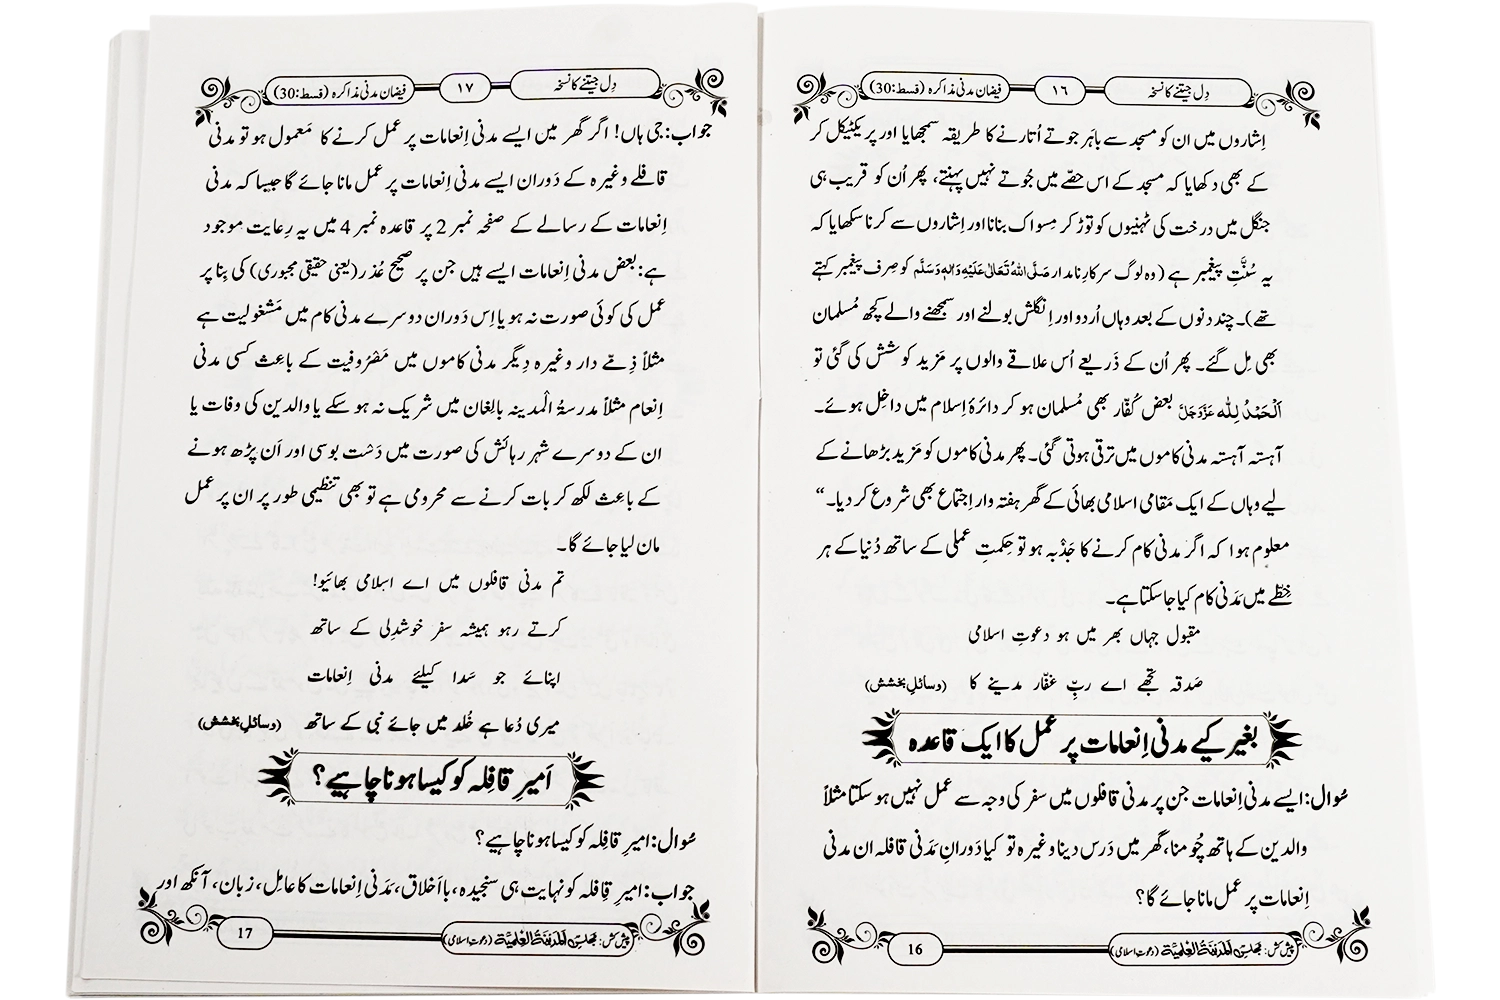 دِل جیتنے کا نسخہ ۱۶ فیضانِ مدنی مذاکرہ (قسط:30)
اِشاروں میں ان کو مسجد سے باہَر جوتے اُتارنے کا طریقہ سمجھایا اور پریکٹیکل کر
کے بھی دکھایا کہ مسجد کے اس حصّے میں جُوتے نہیں پہنتے، پھر اُن کو قریب ہی
جنگل میں درخت کی ٹہنیوں کو توڑ کر مِسواک بنانا اور اِشاروں سے کرنا سکھایا کہ
یہ سُنَّتِ پیغمبر ہے (وہ لوگ سرکارِ نامدار صَلَّی اللہُ تَعَالٰی عَلَیْہِ وَاٰلِہٖ وَسَلَّم کو صِرف پیغمبر کہتے
تھے)۔ چند دنوں کے بعد وہاں اُردو اور اِنگلش بولنے اور سمجھنے والے کچھ مُسلمان
بھی مِل گئے۔ پھر اُن کے ذَریعے اُس علاقے والوں پر مَزید کوشش کی گئی تو
اَلْحَمْدُ لِلّٰہ عَزَّوَجَلَّ بعض کُفّار بھی مُسلمان ہو کر دائرۂ اِسلام میں داخِل ہوئے۔
آہستہ آہستہ مَدنی کاموں میں ترقی ہوتی گئی۔ پھر مَدنی کاموں کو مَزید بڑھانے کے
لیے وہاں کے ایک مَقامی اسلامی بھائی کے گھر ہفتہ وار اِجتماع بھی شروع کر دیا۔“
معلوم ہوا کہ اگر مَدنی کام کرنے کا جَذْبہ ہو تو حِکمتِ عملی کے ساتھ دُنیا کے ہر
خِطّے میں مَدَنی کام کیا جا سکتا ہے۔
مقبول جہاں بھر میں ہو دعوتِ اسلامی
صَدقہ تجھے اے ربِّ غفّار مدینے کا (وسائلِ بخشش)
بغیر کیے مدنی اِنعامات پر عمل کا ایک قاعدہ
سُوال: ایسے مدنی اِنعامات جن پر مَدنی قافلوں میں سفر کی وجہ سے عمل نہیں ہو سکتا مثلاً
والدین کے ہاتھ چُومنا، گھر میں دَرس دینا وغیرہ تو کیا دَورانِ مَدَنی قافلہ ان مدنی
اِنعامات پر عمل مانا جائے گا؟
پیش کش: مجلس المدینۃ العلمیۃ (دعوتِ اسلامی) 16
دِل جیتنے کا نسخہ ۱۷ فیضانِ مدنی مذاکرہ (قسط:30)
جواب: جی ہاں! اگر گھر میں ایسے مدنی اِنعامات پر عمل کرنے کا مَعمول ہو تو مدنی
قافلے وغیرہ کے دَوران ایسے مدنی اِنعامات پر عمل مانا جائے گا جیسا کہ مدنی
اِنعامات کے رسالے کے صفحہ نمبر 2 پر قاعدہ نمبر 4 میں یہ رِعایت موجود
ہے: بعض مدنی اِنعامات ایسے ہیں جن پر صحیح عُذر (یعنی حقیقی مجبوری) کی بِنا پر
عمل کی کوئی صورت نہ ہو یا اِس دَوران دوسرے مدنی کام میں مَشغولیت ہے
مثلاً ذِمّے دار وغیرہ دِیگر مَدنی کاموں میں مَصْرُوفیت کے باعِث کسی مدنی
اِنعام مثلاً مدرسۃُ الْمدینہ بالِغان میں شریک نہ ہو سکے یا والدین کی وفات یا
ان کے دوسرے شہر رہائش کی صورت میں دَشت بوسی اور اَن پڑھ ہونے
کے باعِث لکھ کر بات کرنے سے محرومی ہے تو بھی تنظیمی طور پر ان پر عمل
مان لیا جائے گا۔
تم مدنی قافلوں میں اے اسلامی بھائیو!
کرتے رہو ہمیشہ سفر خوشدِلی کے ساتھ
اپنائے جو سَدا کیلئے مدنی اِنعامات
میری دُعا ہے خُلد میں جائے نبی کے ساتھ (وسائلِ بخشش)
اَمیرِ قافِلہ کو کیسا ہونا چاہیے؟
سُوال: امیرِ قافِلہ کو کیسا ہونا چاہیے؟
جواب: امیرِ قافِلہ کو نہایت ہی سنجیدہ، با اَخلاق، مَدَنی اِنعامات کا عامِل، زبان، آنکھ اور
پیش کش: مجلس المدینۃ العلمیۃ (دعوتِ اسلامی) 17